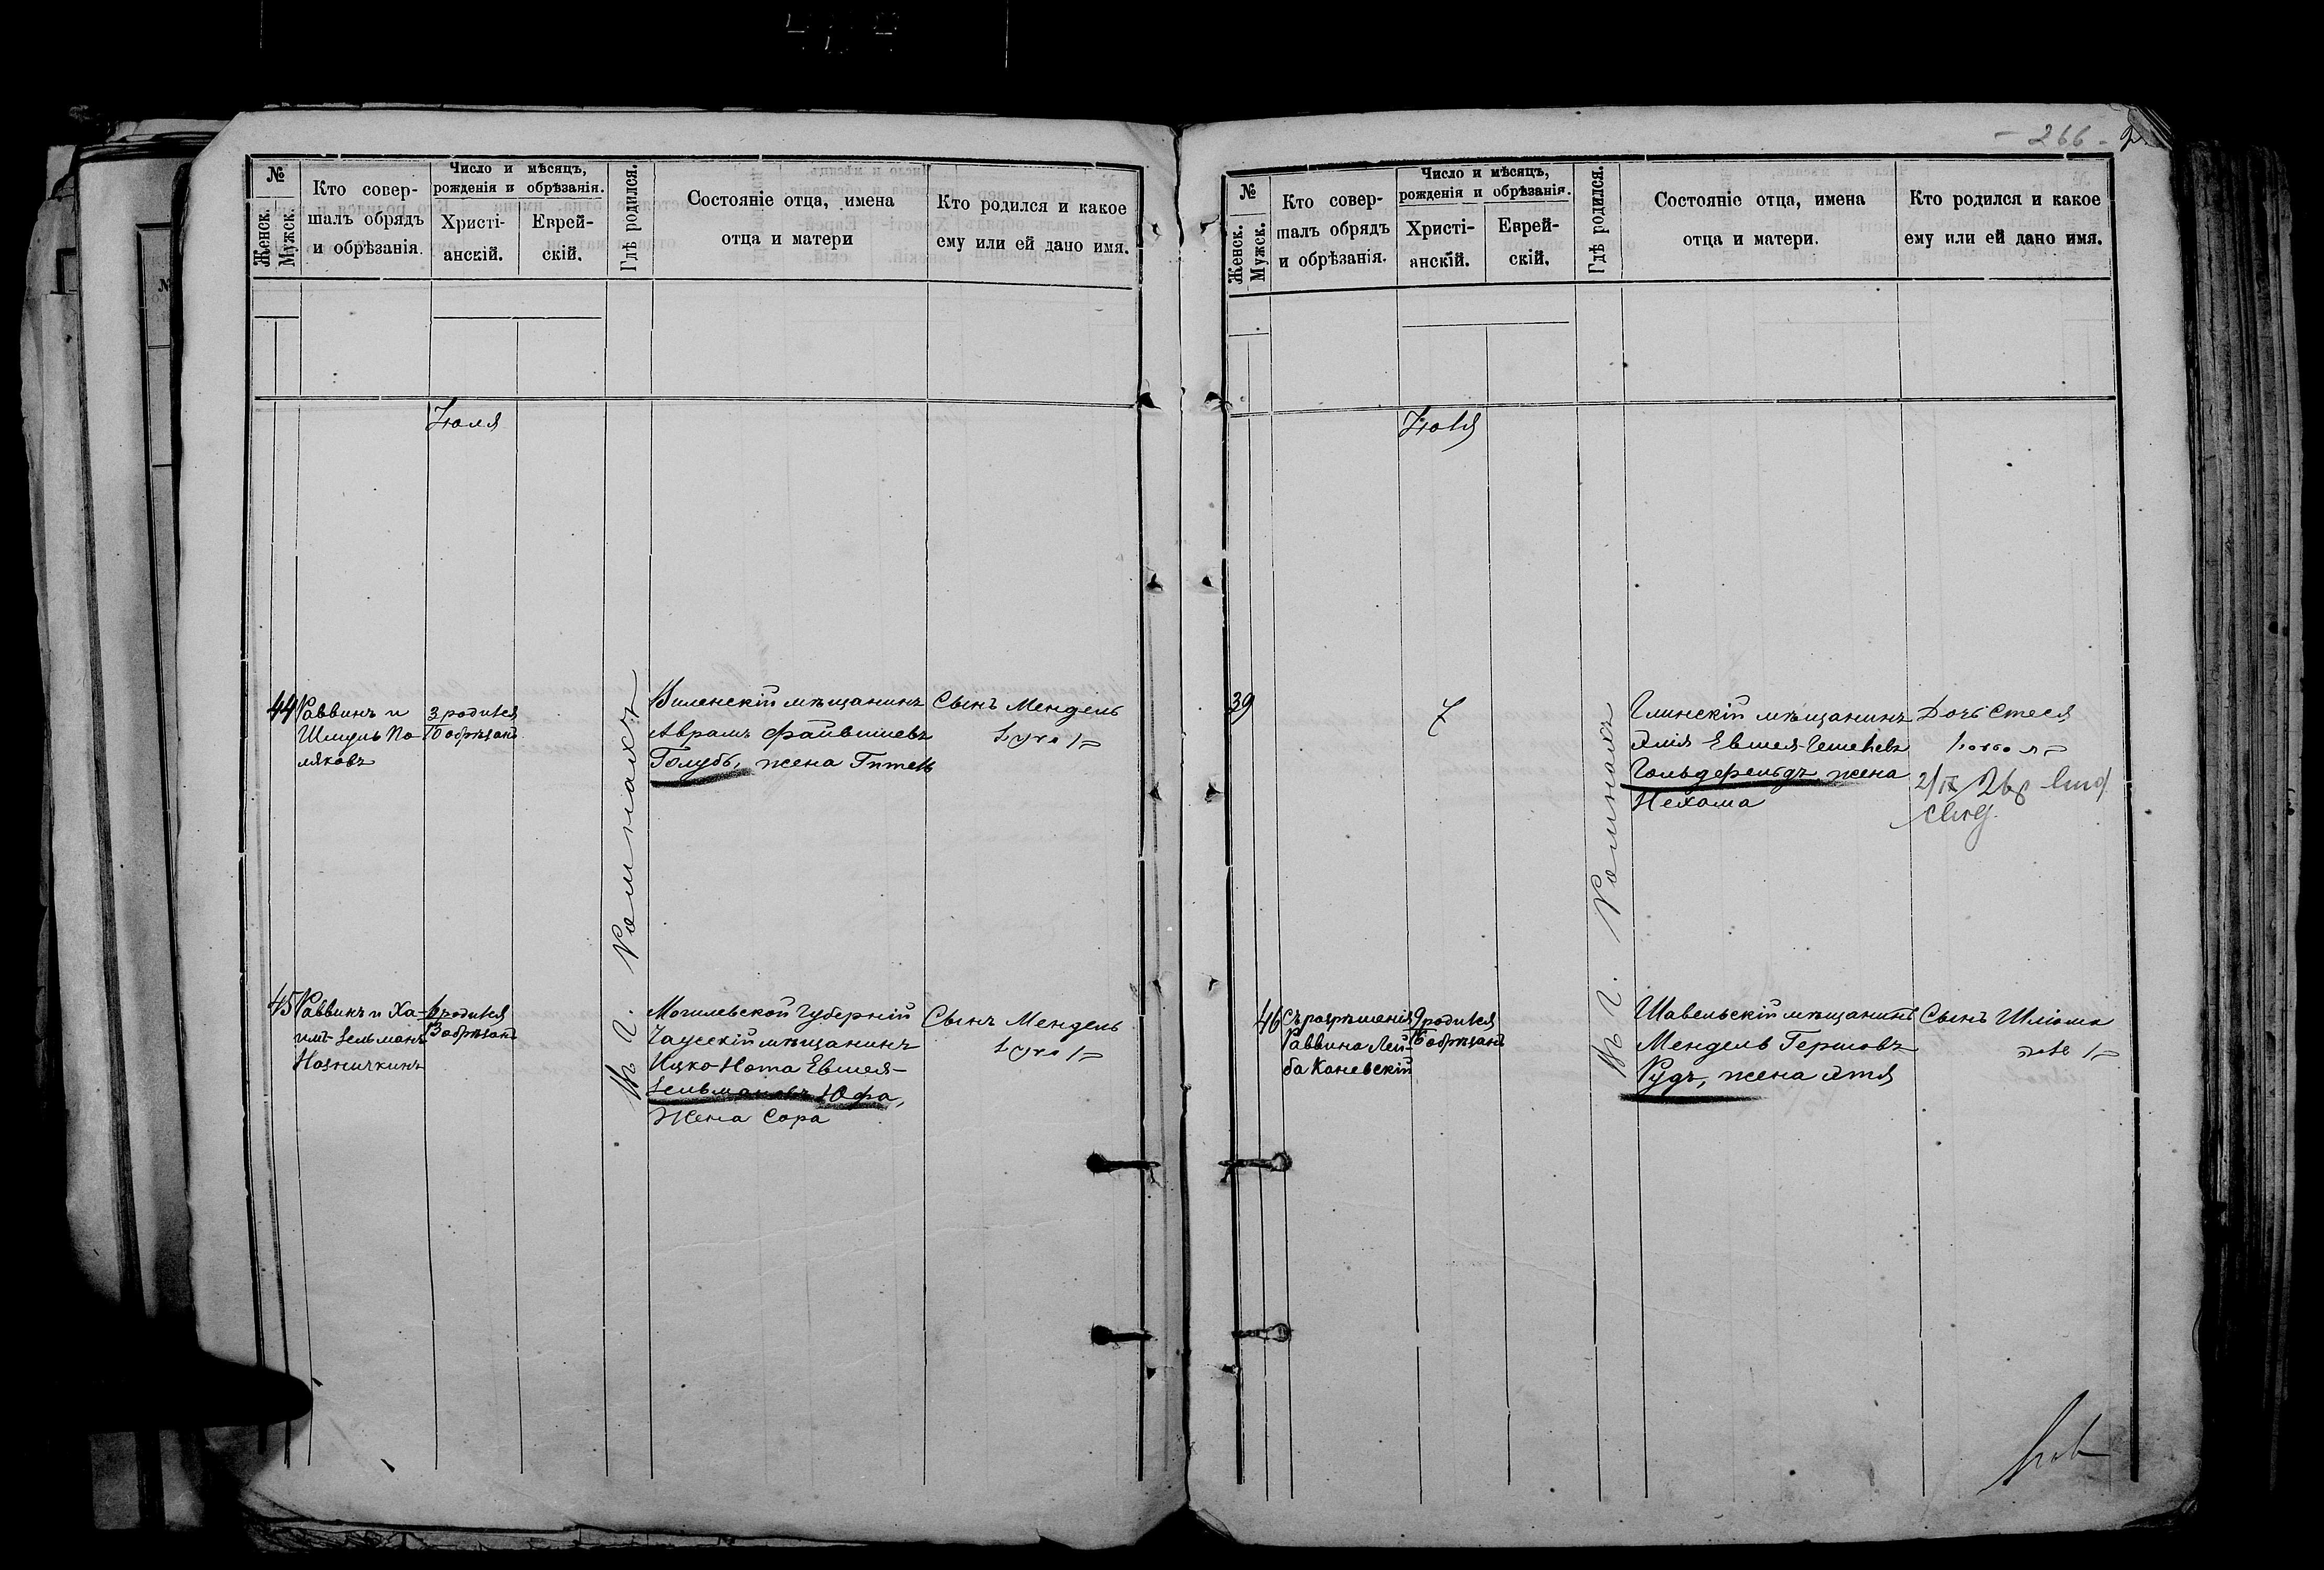 - 266 -
№
Женск.
Мужск.
Кто совер-
шалъ обрядъ
и обрѣзанія.
Число и мѣсяцъ,
рожденія и обрѣзанія.
Христі-
анскій.
Еврей-
скій.
Гдѣ родился.
Состояніе отца, имена
отца и матери
Кто родился и какое
ему или ей дано имя.
Іюля
44
Раввинъ и
Шмуль По-
ляковъ
3 родился
10 обрѣзанъ
Въ г. Ромнахъ
Виленскій мѣщанинъ
Абрамъ Файвишевъ
Голубъ, жена Гитель
Сынъ Мендель
45
Раввинъ и Ха-
имъ-Зельманъ
6 родился
13 обрѣзанъ
Могилевской Губерніи
Чаусскій мѣщанинъ
Ицко-Нота Евшея-
Зельмановъ Юфа,
Жена Сора
Сынъ Мендель
№
Женск.
Мужск.
Кто совер-
шалъ обрядъ
и обрѣзанія.
Число и мѣсяцъ,
рожденія и обрѣзанія.
Христі-
анскій.
Еврей-
скій.
Гдѣ родился.
Состояніе отца, имена
отца и матери.
Кто родился и какое
ему или ей дано имя.
Іюля
39
7
Въ г. Ромнахъ
Глинскій мѣщанинъ
Гольдфельдъ, жена
Нехама
Дочь Стеся
46
Съ разрѣшенія
Раввина Лей-
ба Каневскій
9 родился
16 обрѣзанъ
Шавельскій мѣщанинъ
Мендель Гершовъ
Рудъ, жена Этя
Сынъ Шліома